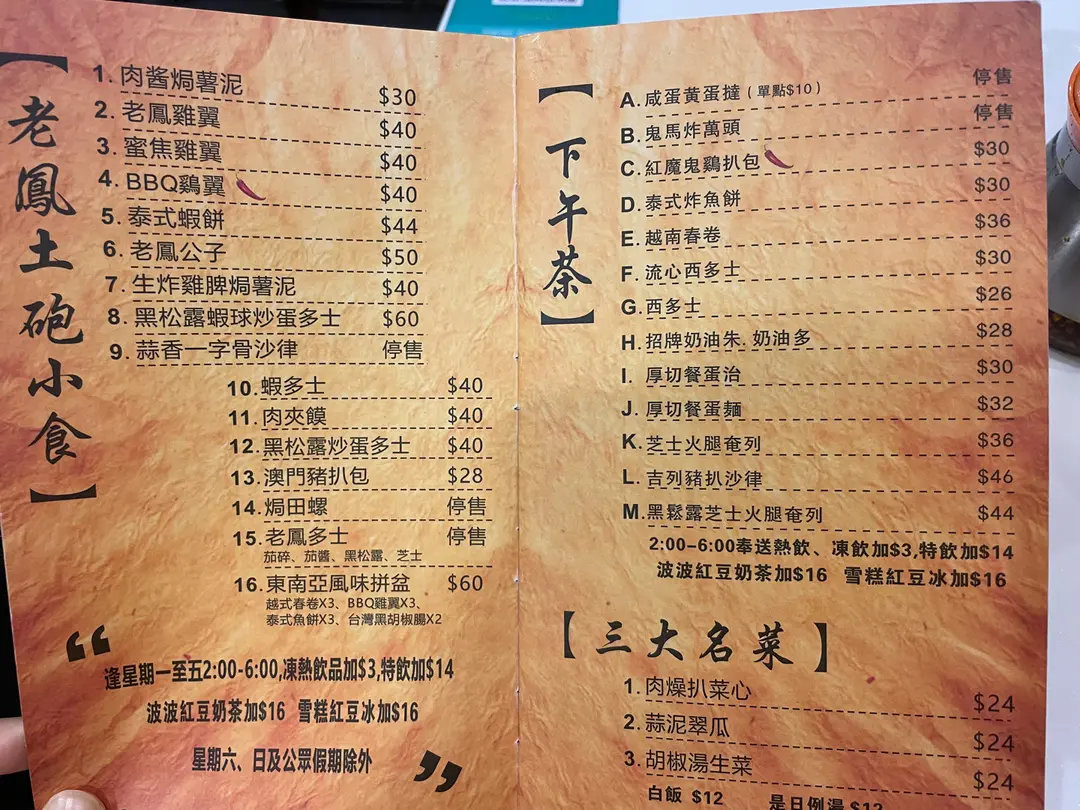 【老鳳土砲小食】
1. 肉醬焗薯泥 $30
2. 老鳳雞翼 $40
3. 蜜焦雞翼 $40
4. BBQ鷄翼 $40
5. 泰式蝦餅 $44
6. 老鳳公子 $50
7. 生炸雞脾焗薯泥 $40
8. 黑松露蝦球炒蛋多士 $60
9. 蒜香一字骨沙律 停售
10. 蝦多士 $40
11. 肉夾饃 $40
12. 黑松露炒蛋多士 $40
13. 澳門豬扒包 $28
14. 焗田螺 停售
15. 老鳳多士 停售
茄碎、茄醬、黑松露、芝士
16. 東南亞風味拼盆 $60
越式春卷X3、BBQ雞翼X3、
泰式魚餅X3、台灣黑胡椒腸X2
“
逢星期一至五2:00-6:00,凍熱飲品加$3,特飲加$14
波波紅豆奶茶加$16 雪糕紅豆冰加$16
星期六、日及公眾假期除外
”
【下午茶】
A. 咸蛋黄蛋撻（單點$10） 停售
B. 鬼馬炸萬頭 停售
C. 紅魔鬼鷄扒包 $30
D. 泰式炸魚餅 $30
E. 越南春卷 $36
F. 流心西多士 $30
G. 西多士 $26
H. 招牌奶油朱. 奶油多 $28
I. 厚切餐蛋治 $30
J. 厚切餐蛋麵 $32
K. 芝士火腿奄列 $36
L. 吉列豬扒沙律 $46
M. 黑鬆露芝士火腿奄列 $44
2:00-6:00奉送熱飲、凍飲加$3,特飲加$14
波波紅豆奶茶加$16 雪糕紅豆冰加$16
【三大名菜】
1. 肉燥扒菜心 $24
2. 蒜泥翠瓜 $24
3. 胡椒湯生菜 $24
白飯 $12 是日例湯 $12